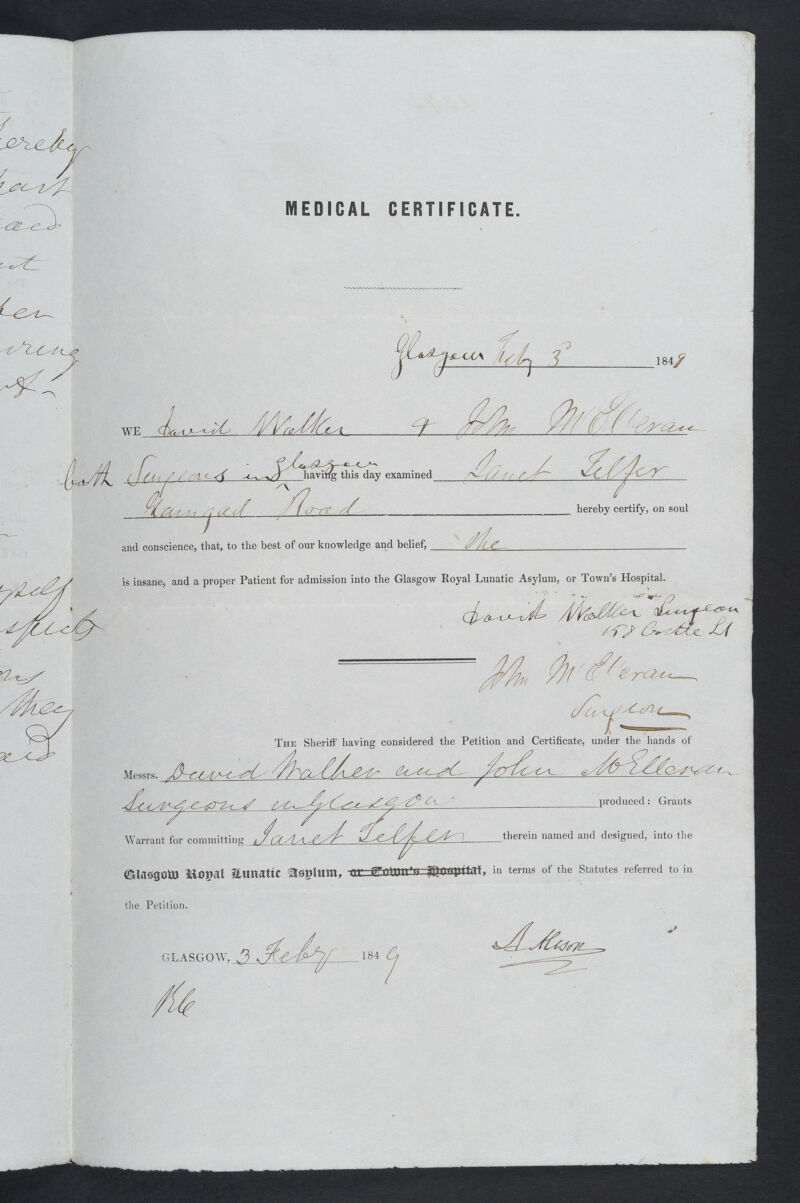 ereby
MEDICAL CERTIFICATE.
Glasgow Feby 3d 1849
WE David Walker & John McElleran
both Surgeons in Glasgow having this day examined Janet Telfer
Garngad Road hereby certify, on soul
and conscience, that, to the best of our knowledge and belief, she
is insane, and a proper Patient for admission into the Glasgow Royal Lunatic Asylum, or Town's Hospital.
David Walker Surgeon
Castle St
John McElleran
Surgeon
THE Sheriff having considered the Petition and Certificate, under the hands of
Messrs. David Walker and John McElleran
Surgeons in Glasgow produced: Grants
Warrant for committing Janet Telfer therein named and designed, into the
Glasgow Royal Lunatic Asylum, or Town's Hospital, in terms of the Statutes referred to in
the Petition.
GLASGOW, 3 Feby 1849
A Alison
they